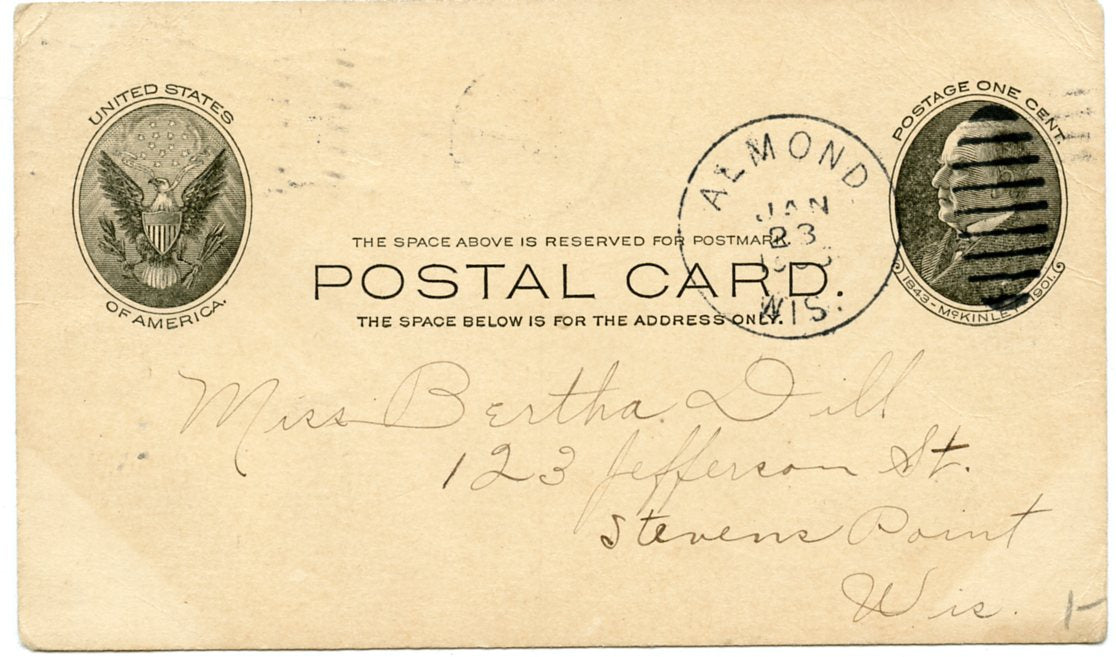 UNITED STATES
OF AMERICA.
POSTAGE ONE CENT.
1843 - McKINLEY - 1901.
ALMOND
JAN
23
WIS.
THE SPACE ABOVE IS RESERVED FOR POSTMARK.
POSTAL CARD.
THE SPACE BELOW IS FOR THE ADDRESS ONLY.
Miss Bertha Dill
123 Jefferson St.
Stevens Point
Wis.